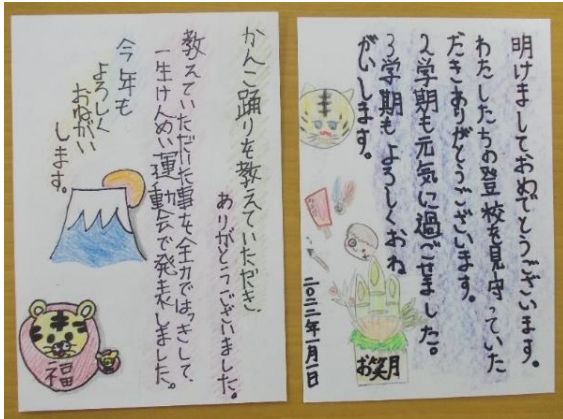 明けましておめでとうございます。
わたしたちの登校を見守っていた
だきありがとうございます。
2学期も元気に過ごせました。
3学期もよろしくおね
がいします。
二〇二二年一月一日
お笑月
かんこ踊りを教えていただき、
ありがとうございました。
教えていただいた事を全力ではっきして、
一生けんめい運動会で発表しました。
今年も
よろしく
おねがい
します。
福